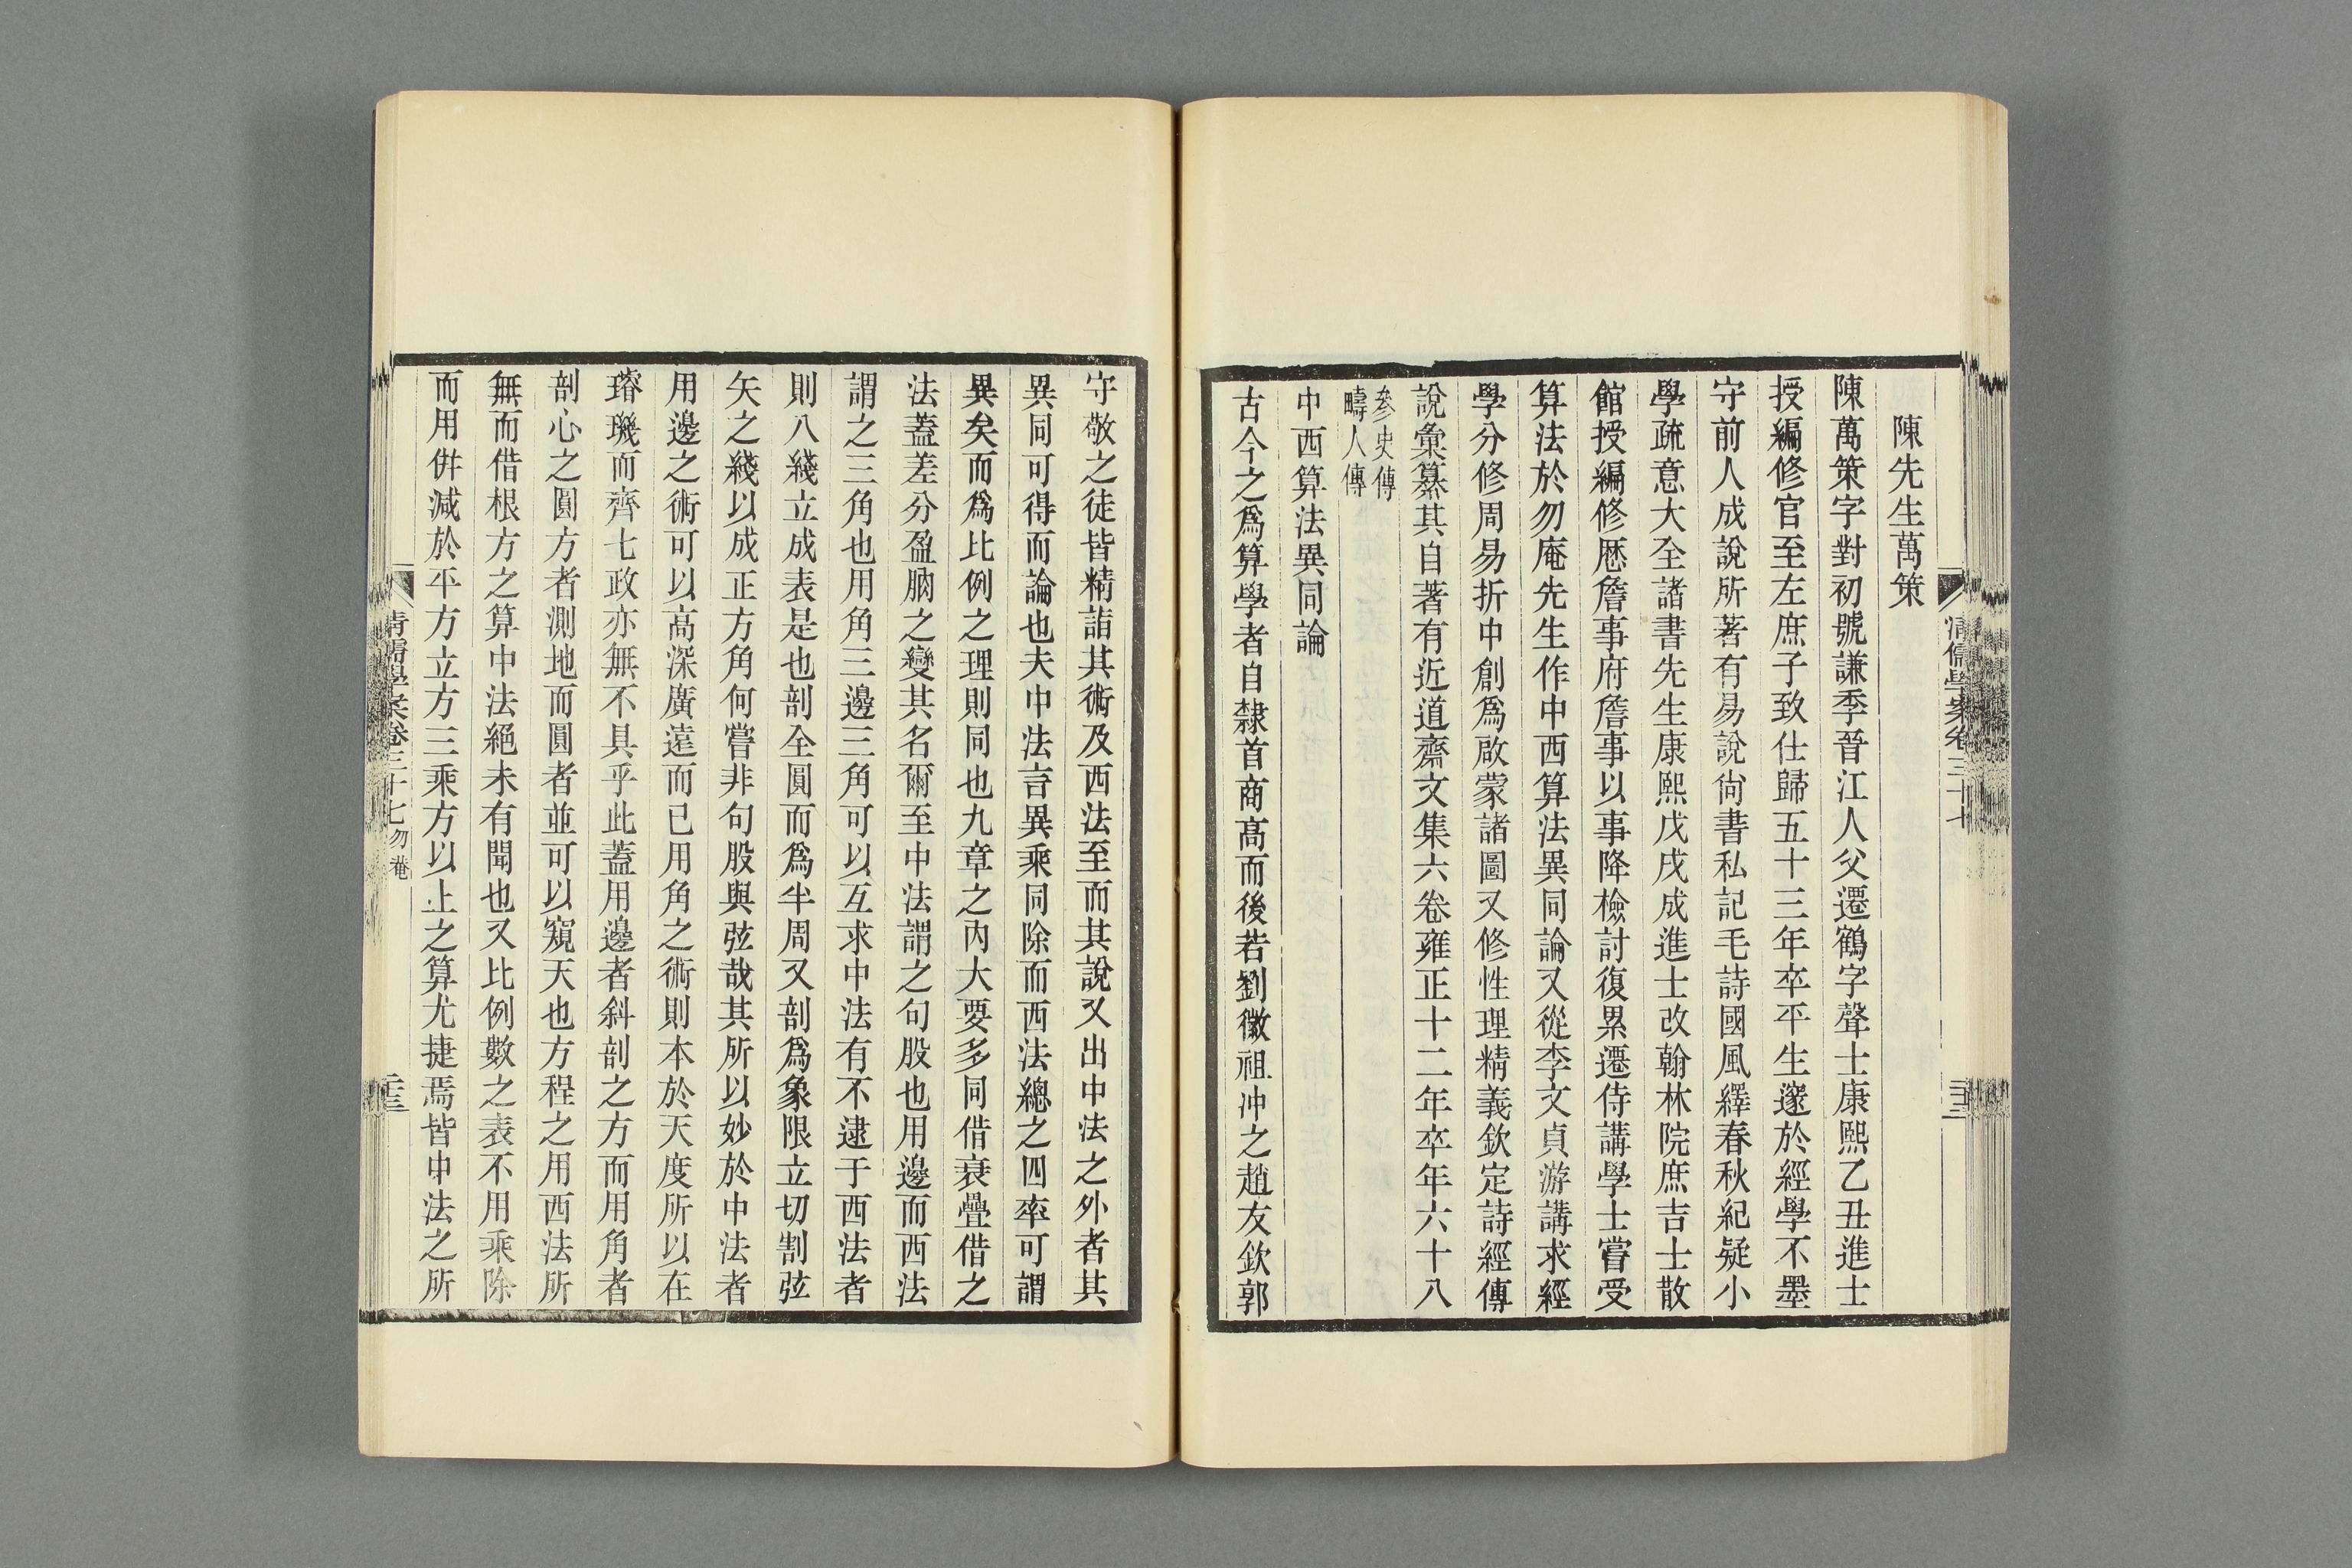 陳先生萬策
陳萬策字對初號謙季晉江人父遷鶴字聲士康熙乙丑進士
授編修官至左庶子致仕歸五十三年卒平生邃於經學不墨
守前人成說所著有易說尙書私記毛詩國風繹春秋紀疑小
學疏意大全諸書先生康熙戊戌成進士改翰林院庶吉士散
館授編修厯詹事府詹事以事降檢討復累遷侍講學士嘗受
算法於勿庵先生作中西算法異同論又從李文貞游講求經
學分修周易折中創爲啟蒙諸圖又修性理精義欽定詩經傳
說彙纂其自著有近道齋文集六卷雍正十二年卒年六十八
參史傳
疇人傳
中西算法異同論
古今之爲算學者自隸首商高而後若劉徽祖沖之趙友欽郭
清儒學案卷三十七
二十三
守敬之徒皆精詣其術及西法至而其說又出中法之外者其
異同可得而論也夫中法言異乘同除而西法總之四率可謂
異矣而爲比例之理則同也九章之內大要多同借衰疊借之
法蓋差分盈朒之變其名爾至中法謂之句股也用邊而西法
謂之三角也用角三邊三角可以互求中法有不逮于西法者
則八綫立成表是也剖全圓而爲半周又剖爲象限立切割弦
矢之綫以成正方角何嘗非句股與弦哉其所以妙於中法者
用邊之術可以高深廣遠而已用角之術則本於天度所以在
璿璣而齊七政亦無不具乎此蓋用邊者斜剖之方而用角者
剖心之圓方者測地而圓者並可以窺天也方程之用西法所
無而借根方之算中法絕未有聞也又比例數之表不用乘除
而用倂減於平方立方三乘方以上之算尤捷焉皆中法之所
清儒學案卷三十七 勿菴
二十三